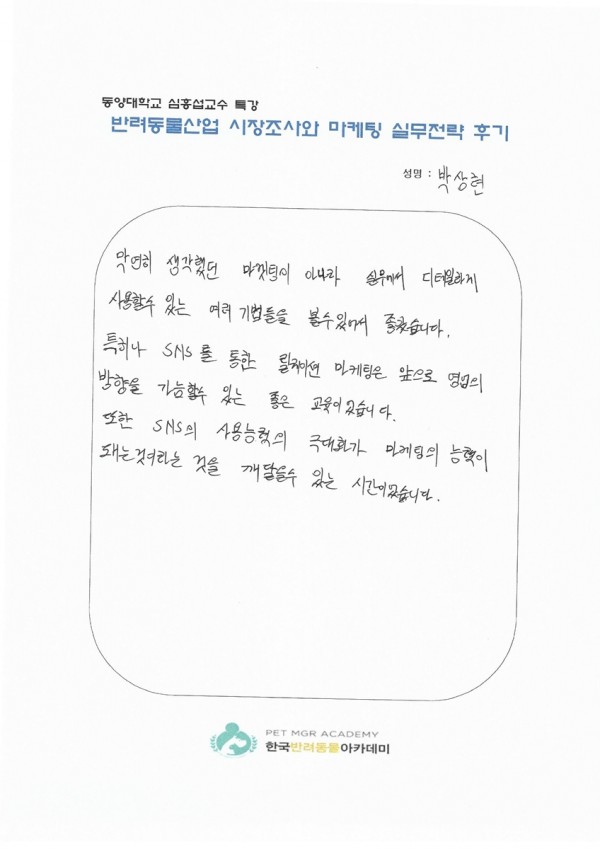 동양대학교 심홍섭교수 특강
반려동물산업 시장조사와 마케팅 실무전략 후기
성명 : 박상현
막연히 생각했던 마켓팅이 아니라 실무에서 디테일하게
사용할수 있는 여러 기법들을 볼수있어서 좋았습니다.
특히나 SNS를 통한 마케팅은 앞으로 영업의
방향을 가늠할수 있는 좋은 교육이였습니다.
또한 SNS의 사용능력의 극대화가 마케팅의 능력이
돼는것이라는 것을 깨달을수 있는 시간이였습니다.
PET MGR ACADEMY
한국반려동물아카데미